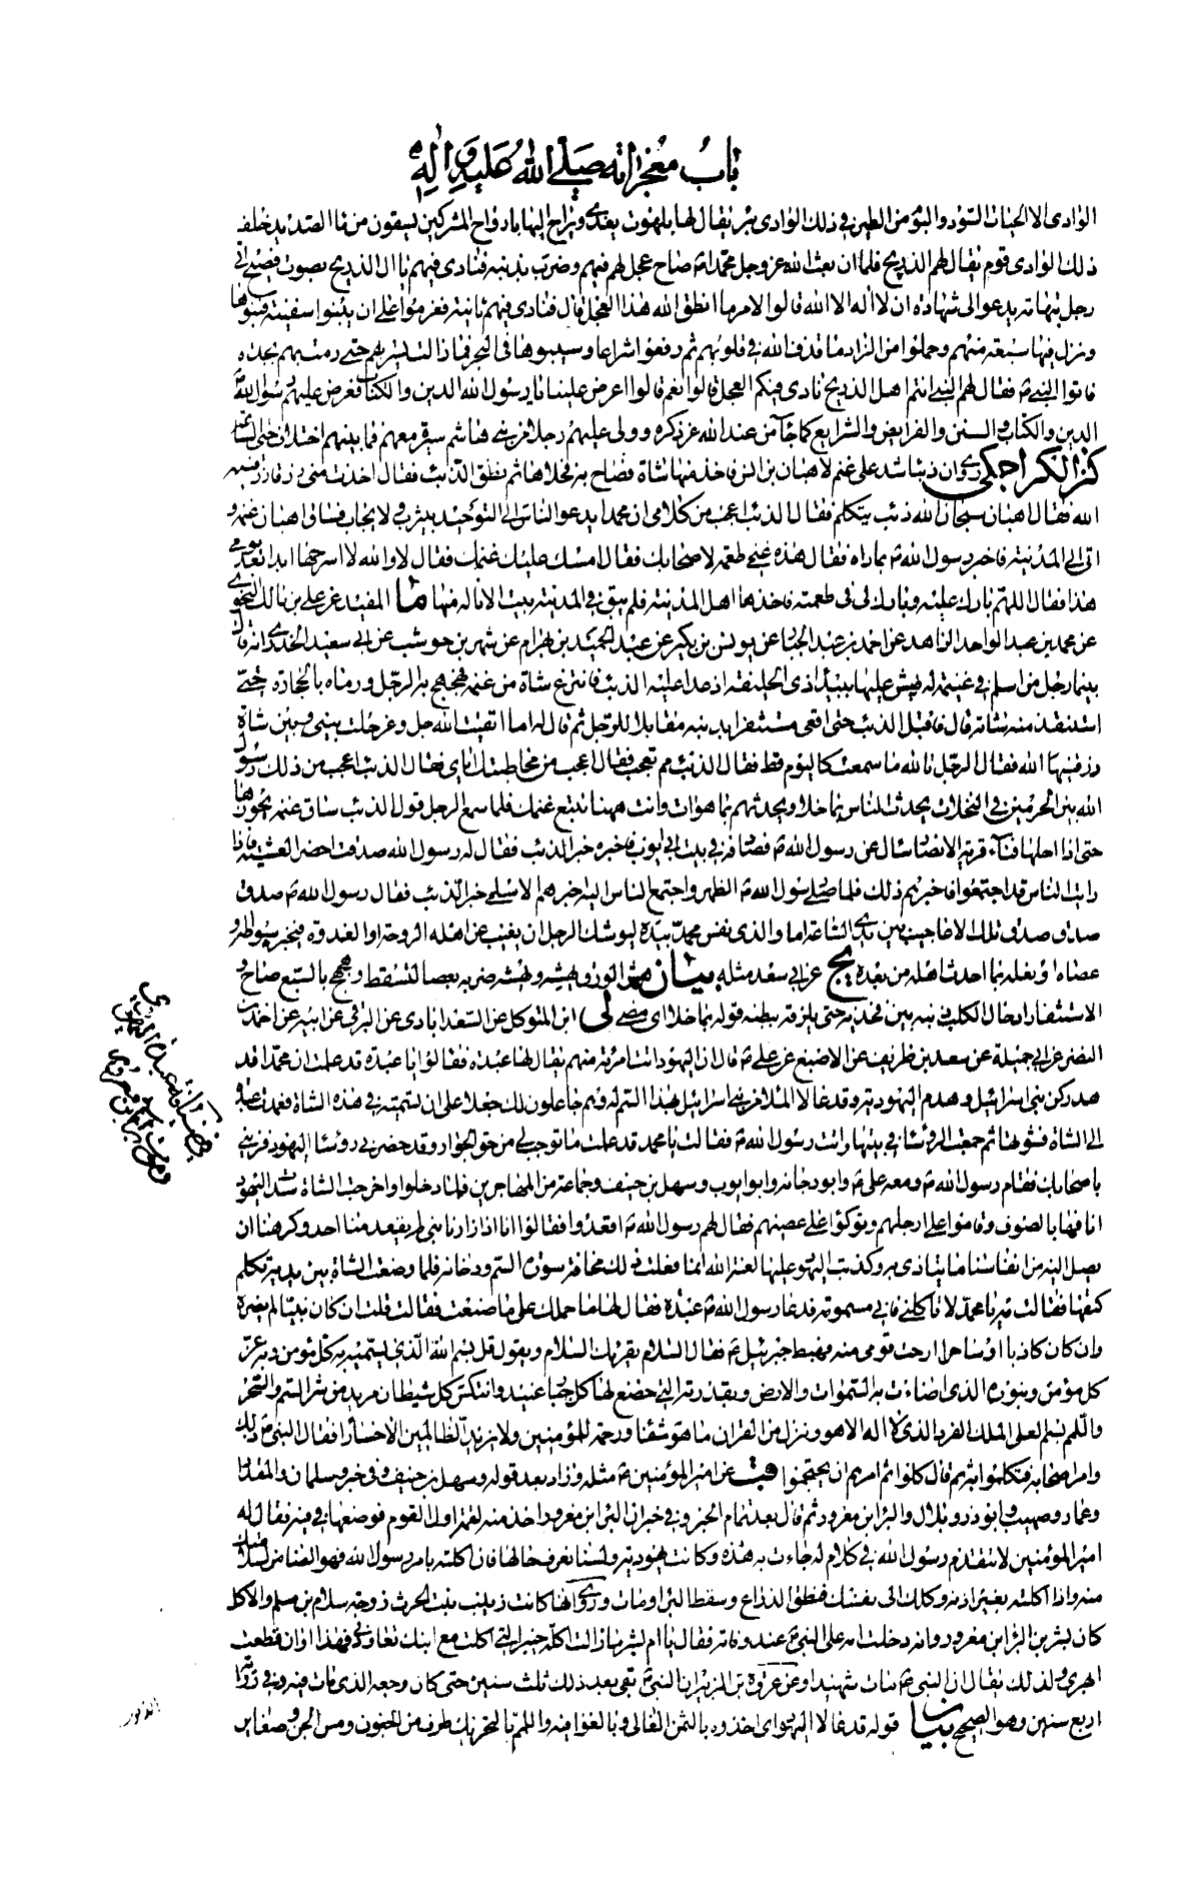 باب معجزاته صلى الله عليه وآله
الوادى الا الحيات السود والبوم من الطير فى ذلك الوادى بئر يقال لها بلهوت يغدى ويراح اليها بارواح المشركين يسقون من ماء الصديد خلف
ذلك الوادى قوم يقال لهم الذريح فلما ان بعث الله عز وجل محمدا ص صاح عجل لهم فيهم وضرب بذنبه فنادى فيهم يا ال الذريح بصوت فصيح اتى
رجل بتهامة يدعو الى شهادة ان لا اله الا الله قالوا لامر ما انطق الله هذا العجل قال فنادى فيهم ثانية فعزموا على ان يبنوا سفينة فبنوها
ونزل فيها سبعة منهم وحملوا من الزاد ما قذف الله فى قلوبهم ثم رفعوا شراعا وسيبوها فى البحر فما زالت تسير بهم حتى رمت بهم بجدة
فاتوا النبى ص فقال لهم النبى انتم اهل الذريح نادى فيكم العجل قالوا نعم قالوا اعرض علينا يا رسول الله الدين والكتاب فعرض عليهم رسول الله
الدين والكتاب والسنن والفرايض والشرايع كما جاء من عند الله عز ذكره وولى عليهم رجلا من بنى هاشم سيره معهم فما بينهم اختلاف حتى الساعة
كنز الكراجكى روى ان ذئبا شد على غنم لاهبان بن انس فاخذ منها شاة فصاح به فخلاها ثم نطق الذئب فقال اخذت منى رزقا رزقنيه
الله فقال اهبان سبحان الله ذئب يتكلم فقال الذئب اعجب من كلامى ان محمدا يدعو الناس الى التوحيد بيثرب ولا يجاب فساق اهبان غنمه و
اتى الى المدينة فاخبر رسول الله ص بما راه فقال هذه غنمى طعمة لاصحابك فقال امسك عليك غنمك فقال لا والله لا اسرحها ابدا بعد يومى
هذا فقال اللهم بارك عليه وبارك له فى طعمته فاخذها اهل المدينة فلم يبق فى المدينة بيت الا ناله منها ما المفيد عن على بن مالك النحوى
عن محمد بن عبد الواحد الزاهد عن احمد بن عبد الجبار عن يونس بن بكير عن عبد الحميد بن بهرام عن شهر بن حوشب عن ابى سعيد الخدرى انه قال
بينما رجل من اسلم فى غنيمة له يهش عليها ببيداء ذى الحليفة اذ عدا عليه الذئب فانتزع شاة من غنمه فهجهج به الرجل ورماه بالحجارة حتى
استنقذ منه شاته قال فاقبل الذئب حتى اقعى مستثفرا بذنبه مقابلا للرجل ثم قال له اما اتقيت الله جل وعز حلت بينى وبين شاة
رزقنيها الله فقال الرجل تالله ما سمعت كاليوم قط فقال الذئب مم تعجب فقال اعجب من مخاطبتك اياى فقال الذئب اعجب من ذلك رسول
الله بين الحرمين فى النخلات يحدث الناس بما خلا ويحدثهم بما هو ات وانت ههنا تتبع غنمك فلما سمع الرجل قول الذئب ساق غنمه يحوزها
حتى اذا احلها فناء قرية الانصار سال عن رسول الله ص فصادفه فى بيت ابى ايوب فاخبره خبر الذئب فقال له رسول الله صدقت احضر العشية فاذا
رايت الناس قد اجتمعوا فاخبرهم ذلك فلما صلى رسول الله ص الظهر واجتمع الناس اليه اخبرهم الاسلمى خبر الذئب فقال رسول الله ص صدق
صدق صدق تلك الاعاجيب بين يدى الساعة اما والذى نفس محمد بيده ليوشك الرجل ان يغيب عن اهله الروحة او الغدوة فيخبره سوطه و
عصاه او نعله بما احدث اهله من بعده يج عن ابى سعد مثله بيان هش الورق يهشه ويهشه ضربه بعصا لتسقط وهجهج بالسبع صاح و
الاستثفار ادخال الكلب ذنبه بين فخذيه حتى يلزقه ببطنه قوله بما خلا اى مضى لى ابن المتوكل عن السعدابادى عن البرقى عن ابيه عن احمد بن
النضر عن ابى جميلة عن سعد بن ظريف عن الاصبغ عن على ع قال ان اليهود اتت امراة منهم يقال لها عبدة فقالوا يا عبدة قد علمت ان محمدا قد
هد ركن بنى اسرائيل وهدم اليهودية وقد غالا الملا من بنى اسرائيل بهذا السم له وهم جاعلون لك جعلا على ان تسميه فى هذه الشاة فعمدت عبدة
الى الشاة فشوتها ثم جمعت الرؤسا فى بيتها واتت رسول الله ص فقالت يا محمد قد علمت ما توجب لى من حق الجوار وقد حضرنى رؤسا اليهود فزينى
باصحابك فقام رسول الله ص ومعه على ع وابو دجانة وابو ايوب وسهل بن حنيف وجماعة من المهاجرين فلما دخلوا واخرجت الشاة سدت اليهود
انافها بالصوف وقاموا على ارجلهم وتوكؤا على عصيهم فقال لهم رسول الله ص اقعدوا فقالوا انا اذا زارنا نبى لم يقعد منا احد وكرهنا ان
يصل اليه من انفاسنا ما يتاذى به وكذبت اليهود عليها لعنة الله انما فعلت ذلك مخافة سورة السم ودخانه فلما وضعت الشاة بين يديه تكلم
كتفها فقالت مه يا محمد لا تاكلنى فانى مسمومة فدعا رسول الله ص عبدة فقال لها ما حملك على ما صنعت فقالت قلت ان كان نبيا لم يضره
وان كان كاذبا او ساحرا ارحت قومى منه فهبط جبرئيل ع فقال السلام يقرئك السلام ويقول قل بسم الله الذى يسميه به كل مؤمن وبه عز
كل مؤمن وبنوره الذى اضاءت به السموات والارض وبقدرته التى خضع لها كل جبار عنيد وانتكس كل شيطان مريد من شر السم والسحر
واللمم بسم العلى الملك الفرد الذى لا اله الا هو وننزل من القران ما هو شفاء ورحمة للمؤمنين ولا يزيد الظالمين الا خسارا فقال النبى ص ذلك
وامر اصحابه فتكلموا به ثم قال كلوا ثم امرهم ان يحتجموا قب عن امير المؤمنين ع مثله وزاد بعد قوله وسهل بن حنيف وفى خبر وسلمان والمقداد
وعمار وصهيب وابو ذر وبلال والبراء ابن معرور ثم قال بعد تمام الخبر وفى خبر ان البراء ابن معرور اخذ منه لقمة اول القوم فوضعها فى فيه فقال له
امير المؤمنين لا تتقدم رسول الله فى كلام له جاءت به هذه وكانت يهودية ولسنا نعرف حالها فان اكلته بامر رسول الله فهو الضامن لسلامتك
منه واذا اكلته بغير اذنه وكلك الى نفسك فنطق الذراع وسقط البراء ومات وروى انها كانت زينب بنت الحرث زوجة سلام بن مسلم والاكل
كان بشر بن البراء ابن معرور وانه دخلت امه على النبى ص عند وفاته فقال يا ام بشر ما زالت اكلة خيبر التى اكلت مع ابنك تعاودنى فهذا اوان قطعت
ابهرى ولذلك يقال ان النبى ص مات شهيدا وعن عروة بن الزبير ان النبى ص بقى بعد ذلك ثلث سنين حتى كان وجعه الذى مات فيه وفى رواية
اربع سنين وهو الصحيح بيان قوله قد غالا اليهود اى اخذوه بالثمن الغالى وبالغوا فيه واللمم بالتحريك طرف من الجنون ومس الجن وصغاير
الذنوب